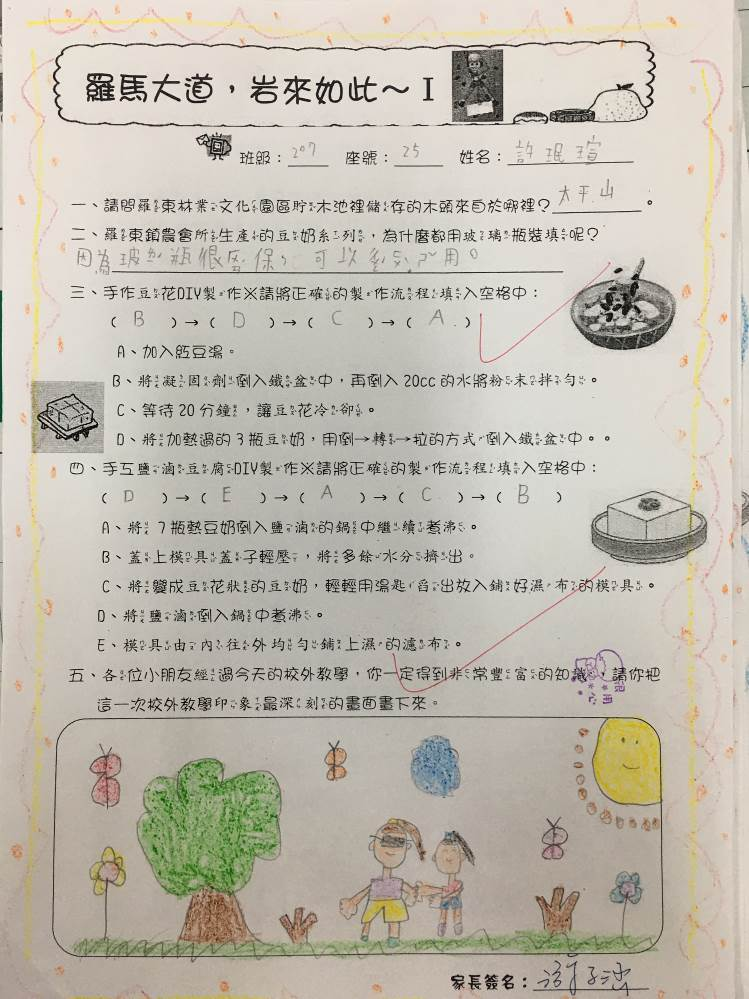 羅馬大道，岩來如此～I
班級：207 座號：25 姓名：許珉瑄
一、請問羅東林業文化園區貯木池裡儲存的木頭來自於哪裡？太平山。
二、羅東鎮農會所生產的豆奶系列，為什麼都用玻璃瓶裝填呢？
因為玻瓶很保可以用。
三、手作豆花DIY製作※請將正確的製作流程填入空格中：
（B）→（D）→（C）→（A）
A、加入紅豆湯。
B、將凝固劑倒入鐵盆中，再倒入20cc的水將粉末拌勻。
C、等待20分鐘，讓豆花冷卻。
D、將加熱過的3瓶豆奶，用倒→轉→拉的方式倒入鐵盆中。。
四、手工鹽滷豆腐DIY製作※請將正確的製作流程填入空格中：
（D）→（E）→（A）→（C）→（B）
A、將7瓶熱豆奶倒入鹽滷的鍋中繼續煮沸。
B、蓋上模具蓋子輕壓，將多餘水分擠出。
C、將變成豆花狀的豆奶，輕輕用湯匙舀出放入鋪好濕布的模具。
D、將鹽滷倒入鍋中煮沸。
E、模具由內往外均勻鋪上濕的濾布。
五、各位小朋友經過今天的校外教學，你一定得到非常豐富的知識，請你把
這一次校外教學印象最深刻的畫面畫下來。
很用心
家長簽名：